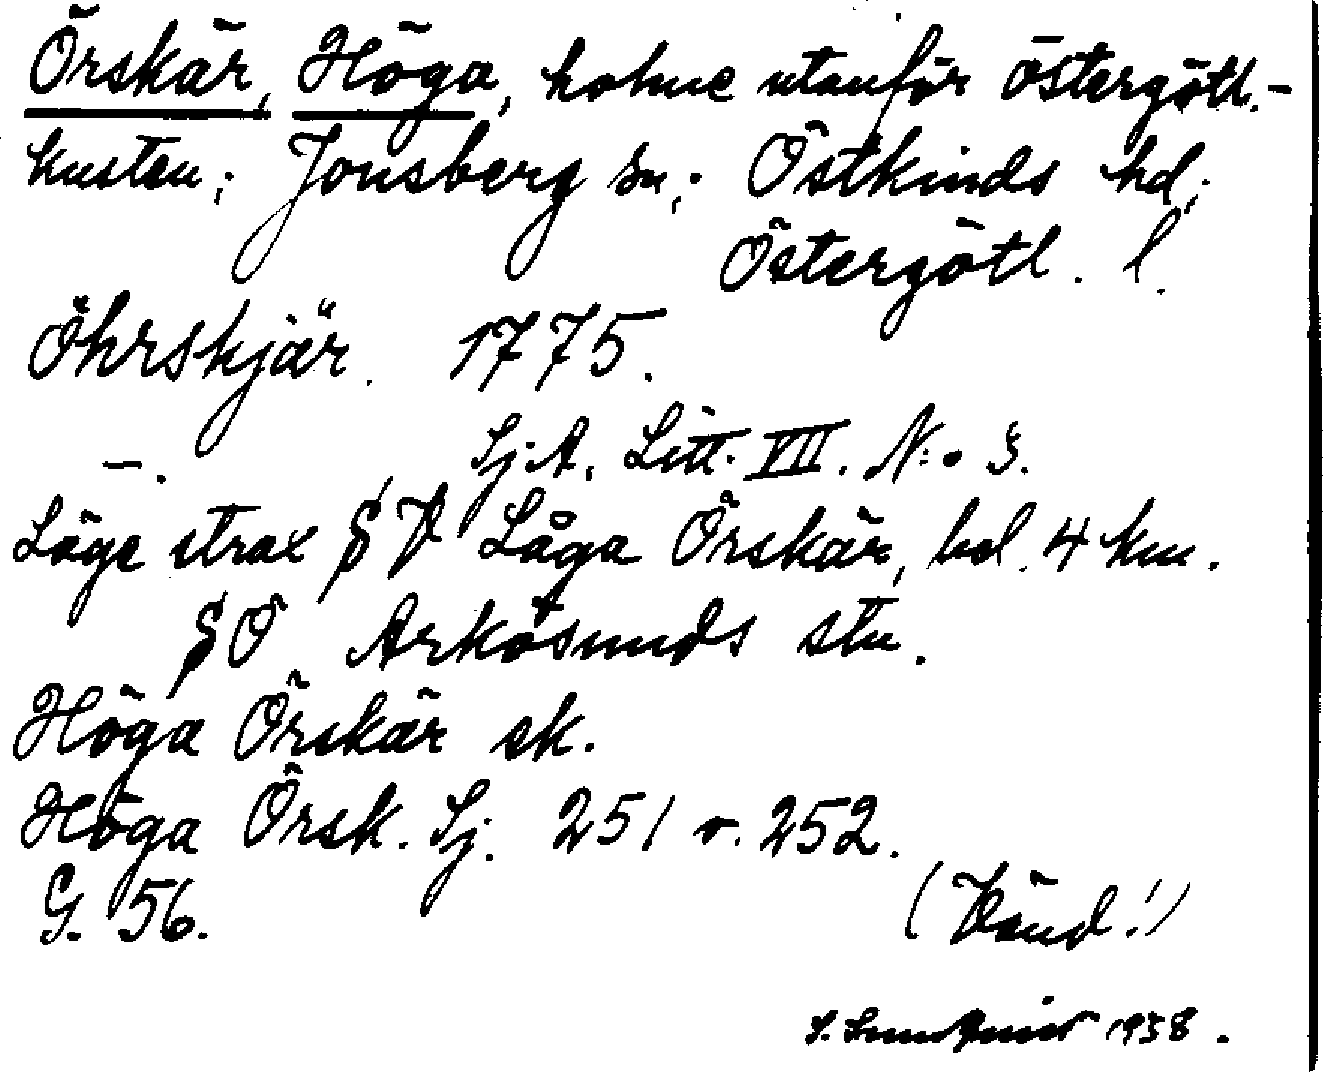 Örskär, Höga, holme utanför östergötl.-
kusten; Jonsberg sn; Östkinds hd;
Östergötl. l.
Öhrskjär. 1775.
—. Sj.A. Litt. VII. N:o 3.
Läge strax SV Låga Örskär, hd. 4 km.
SO Arkösunds stn.
Höga Örskär ek.
Höga Örsk. Sj. 251 o. 252.
G. 56.
(Vänd!)
1938.